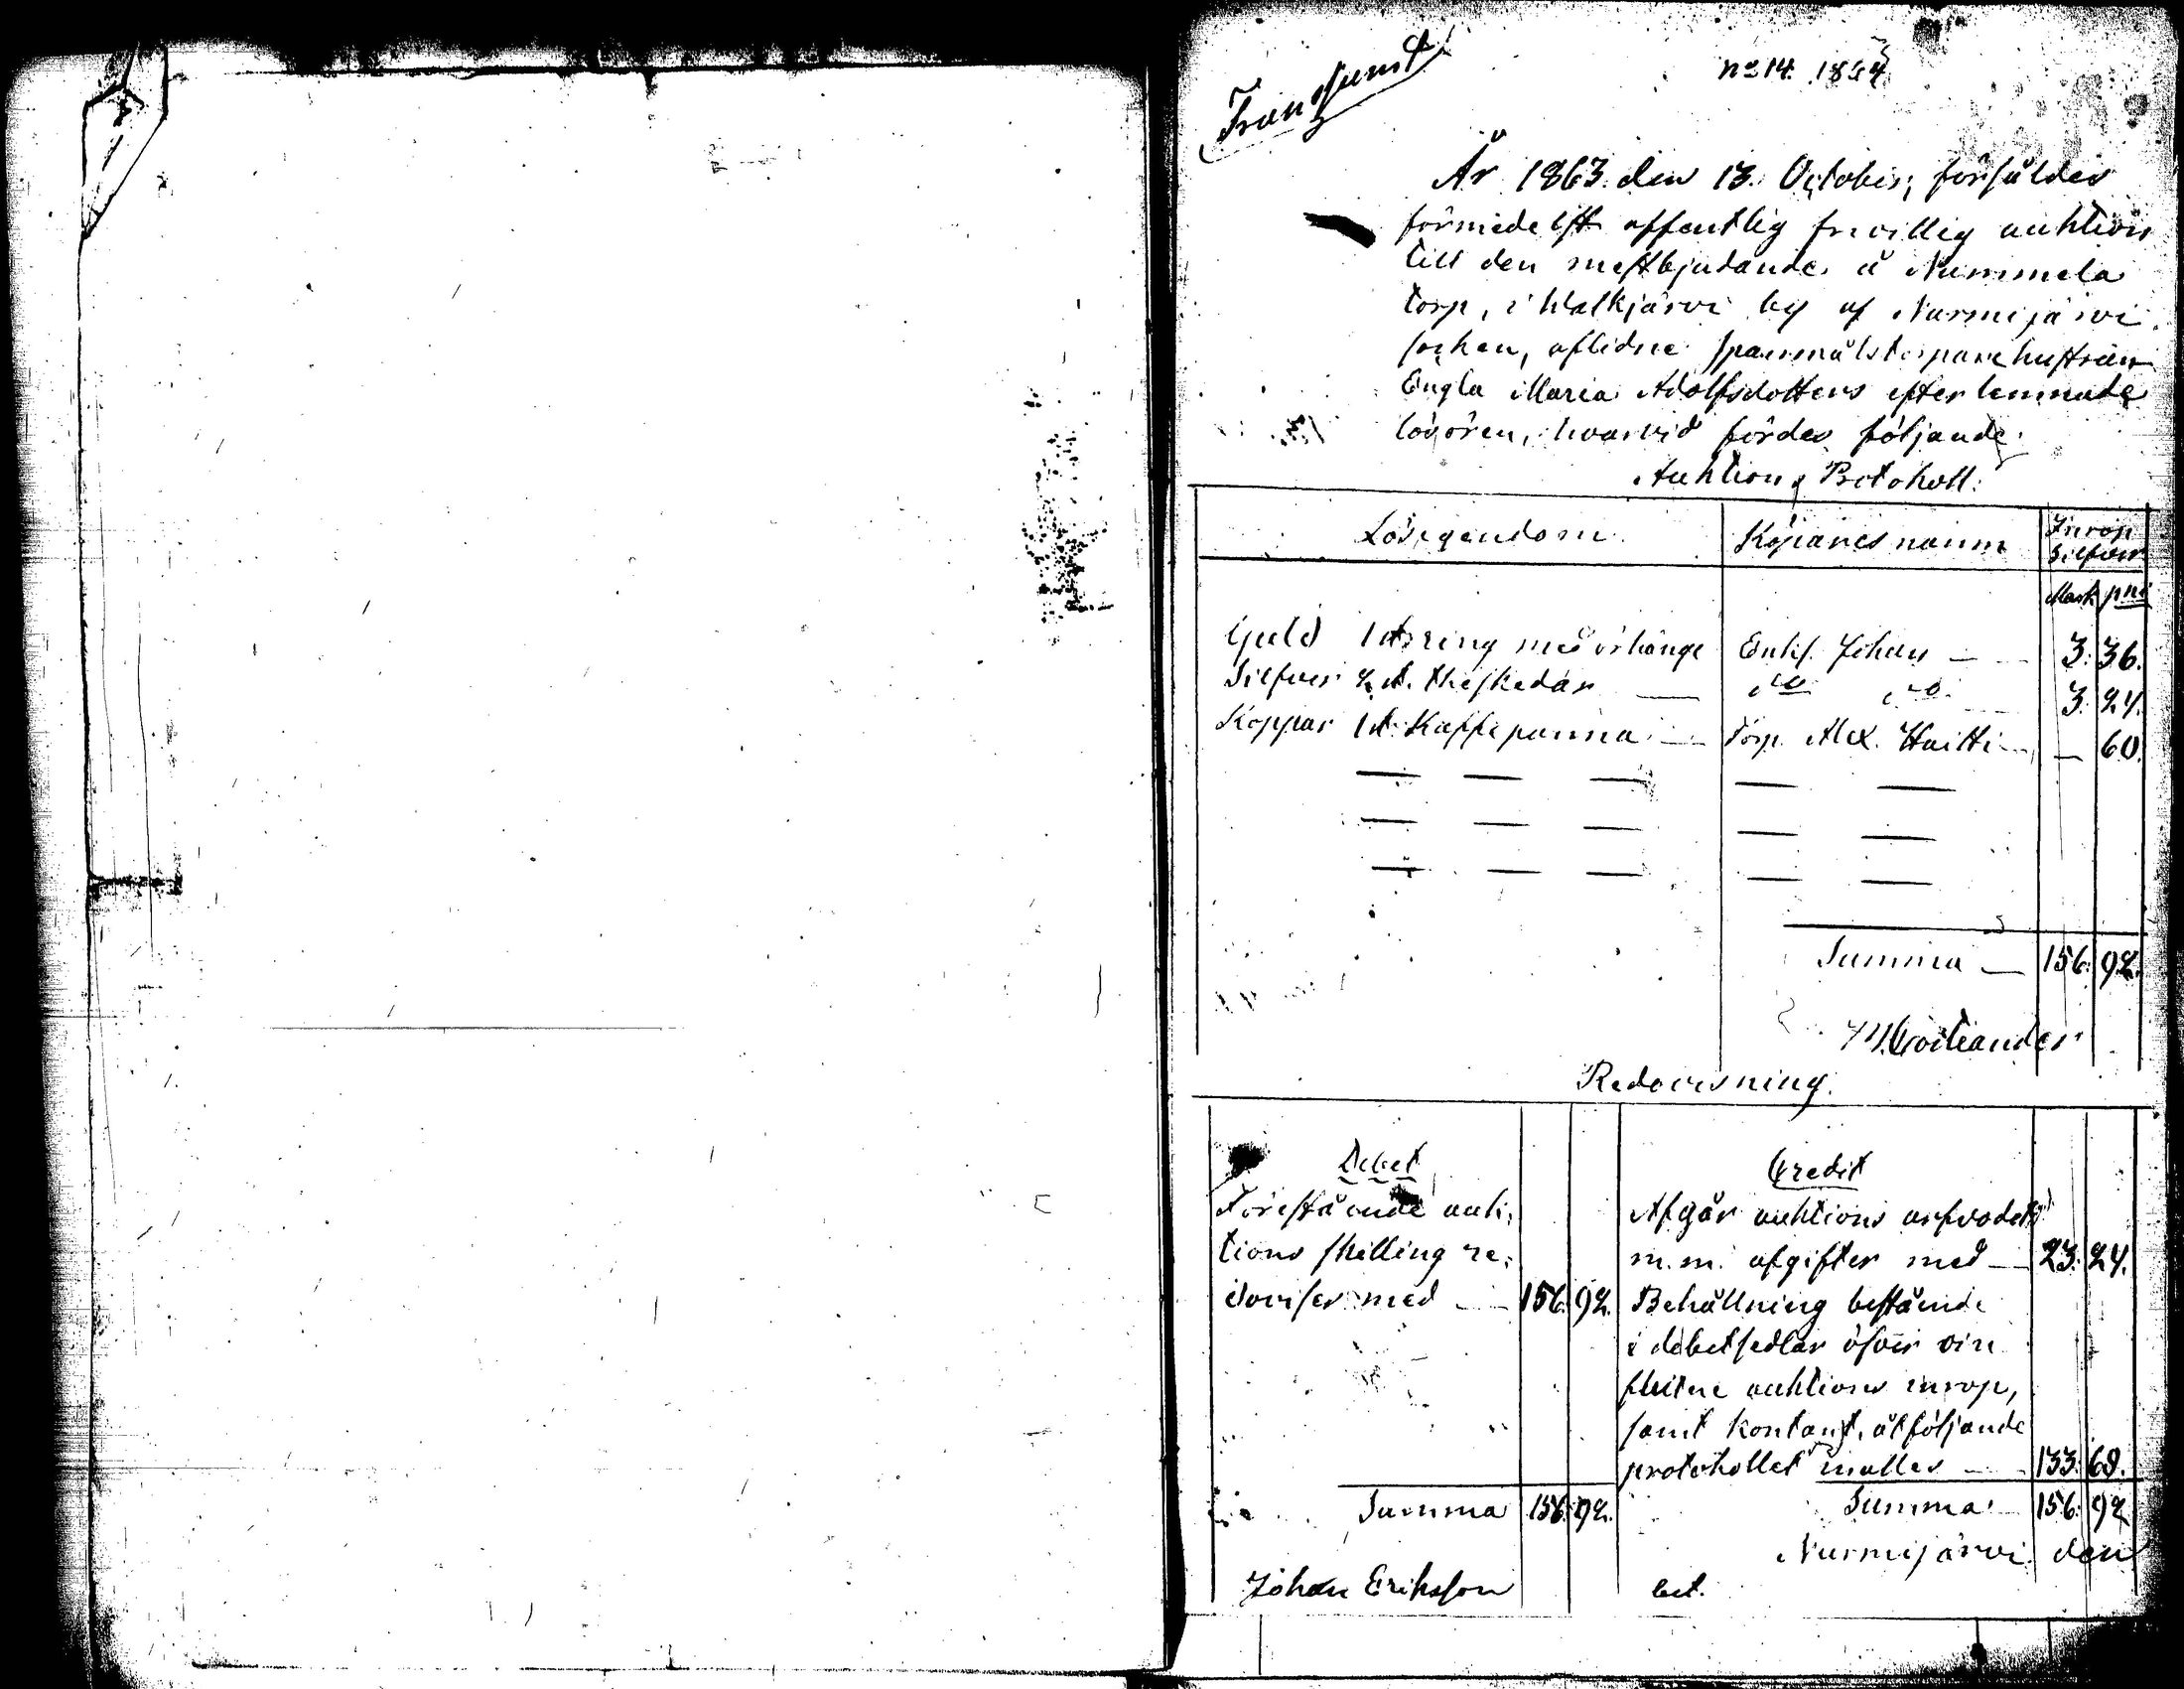 Transsumt
No 14. 1864
År 1863 den 13. October, försåldes
förmedelst offentlig frivillig auktion
till den mestbjudande å Nummela
torp, i Walkjärvi by af Nurmijärvi
socken, aflidne spanmålstorparehustrun
Engla Maria Adolfsdotters efterlemnade
lösören, hvarvid fördes följande
Auktions Protokoll:
Lösegendom Köparens namn Inrop Silfver
Mark pni
Guld 1 st ring med örhänge Enkl. Johan — 3. 36.
Silfver 2 st. theskedar — do do — 3. 24.
Koppar 1 st Kaffepanna — Torp. Alex. Haitti — — 60.
— — — — —
— — — — —
— — — — —
Summa — 156. 92.
Redovisning.
Debet
Förestående auk-
tions skilling re-
dovises med — 156. 92.
Summa 156. 92.
Johan Eriksson
Credit
Afgår auktions arfvodet
m. m. afgifter med — 23. 24.
Behållning bestående
i debetsedlar öfver
auktions inrop,
samt kontant, åtföljande
protokollet — 133. 68.
Summa 156. 92
Nurmijärvi den